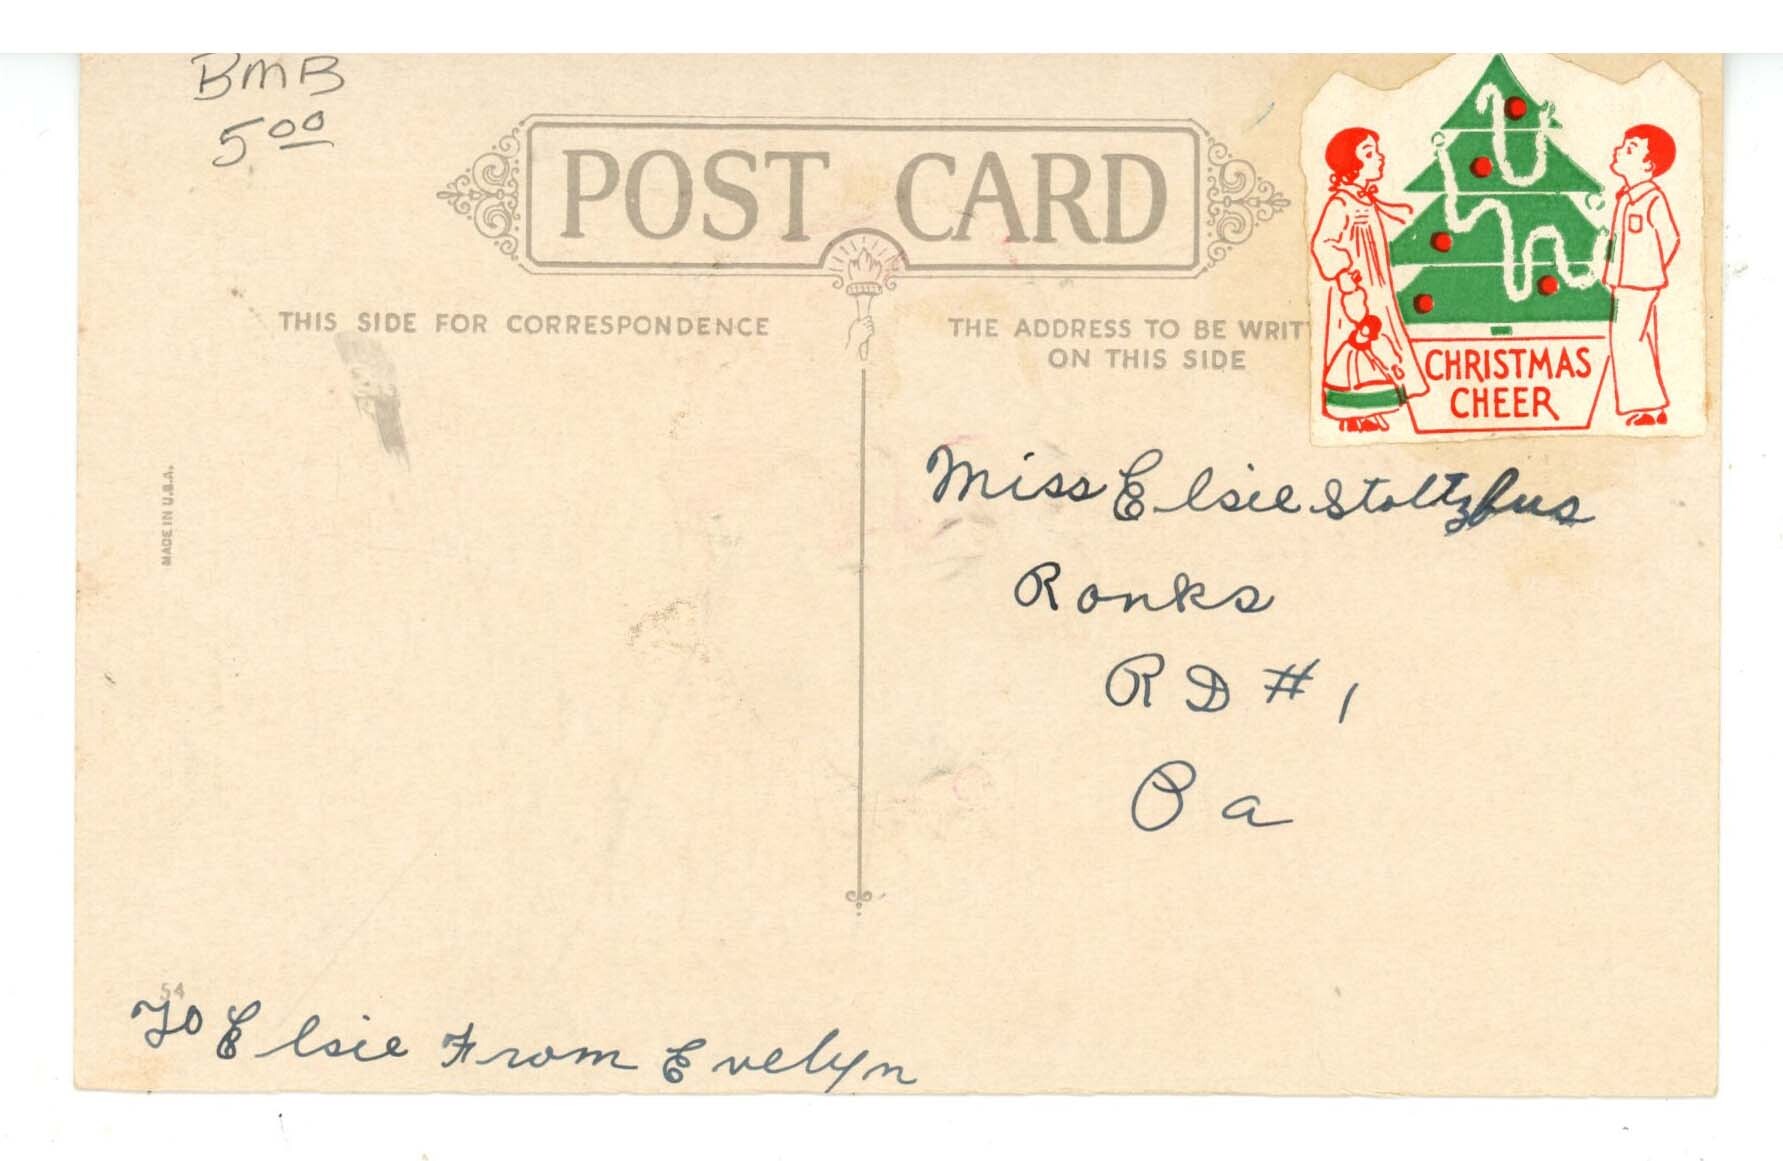 BMB
5⁰⁰
POST CARD
THIS SIDE FOR CORRESPONDENCE
THE ADDRESS TO BE WRIT
ON THIS SIDE
CHRISTMAS
CHEER
MADE IN U.S.A.
Miss Elsie Stoltzfus
Ronks
RD #1
Pa
54
To Elsie From Evelyn